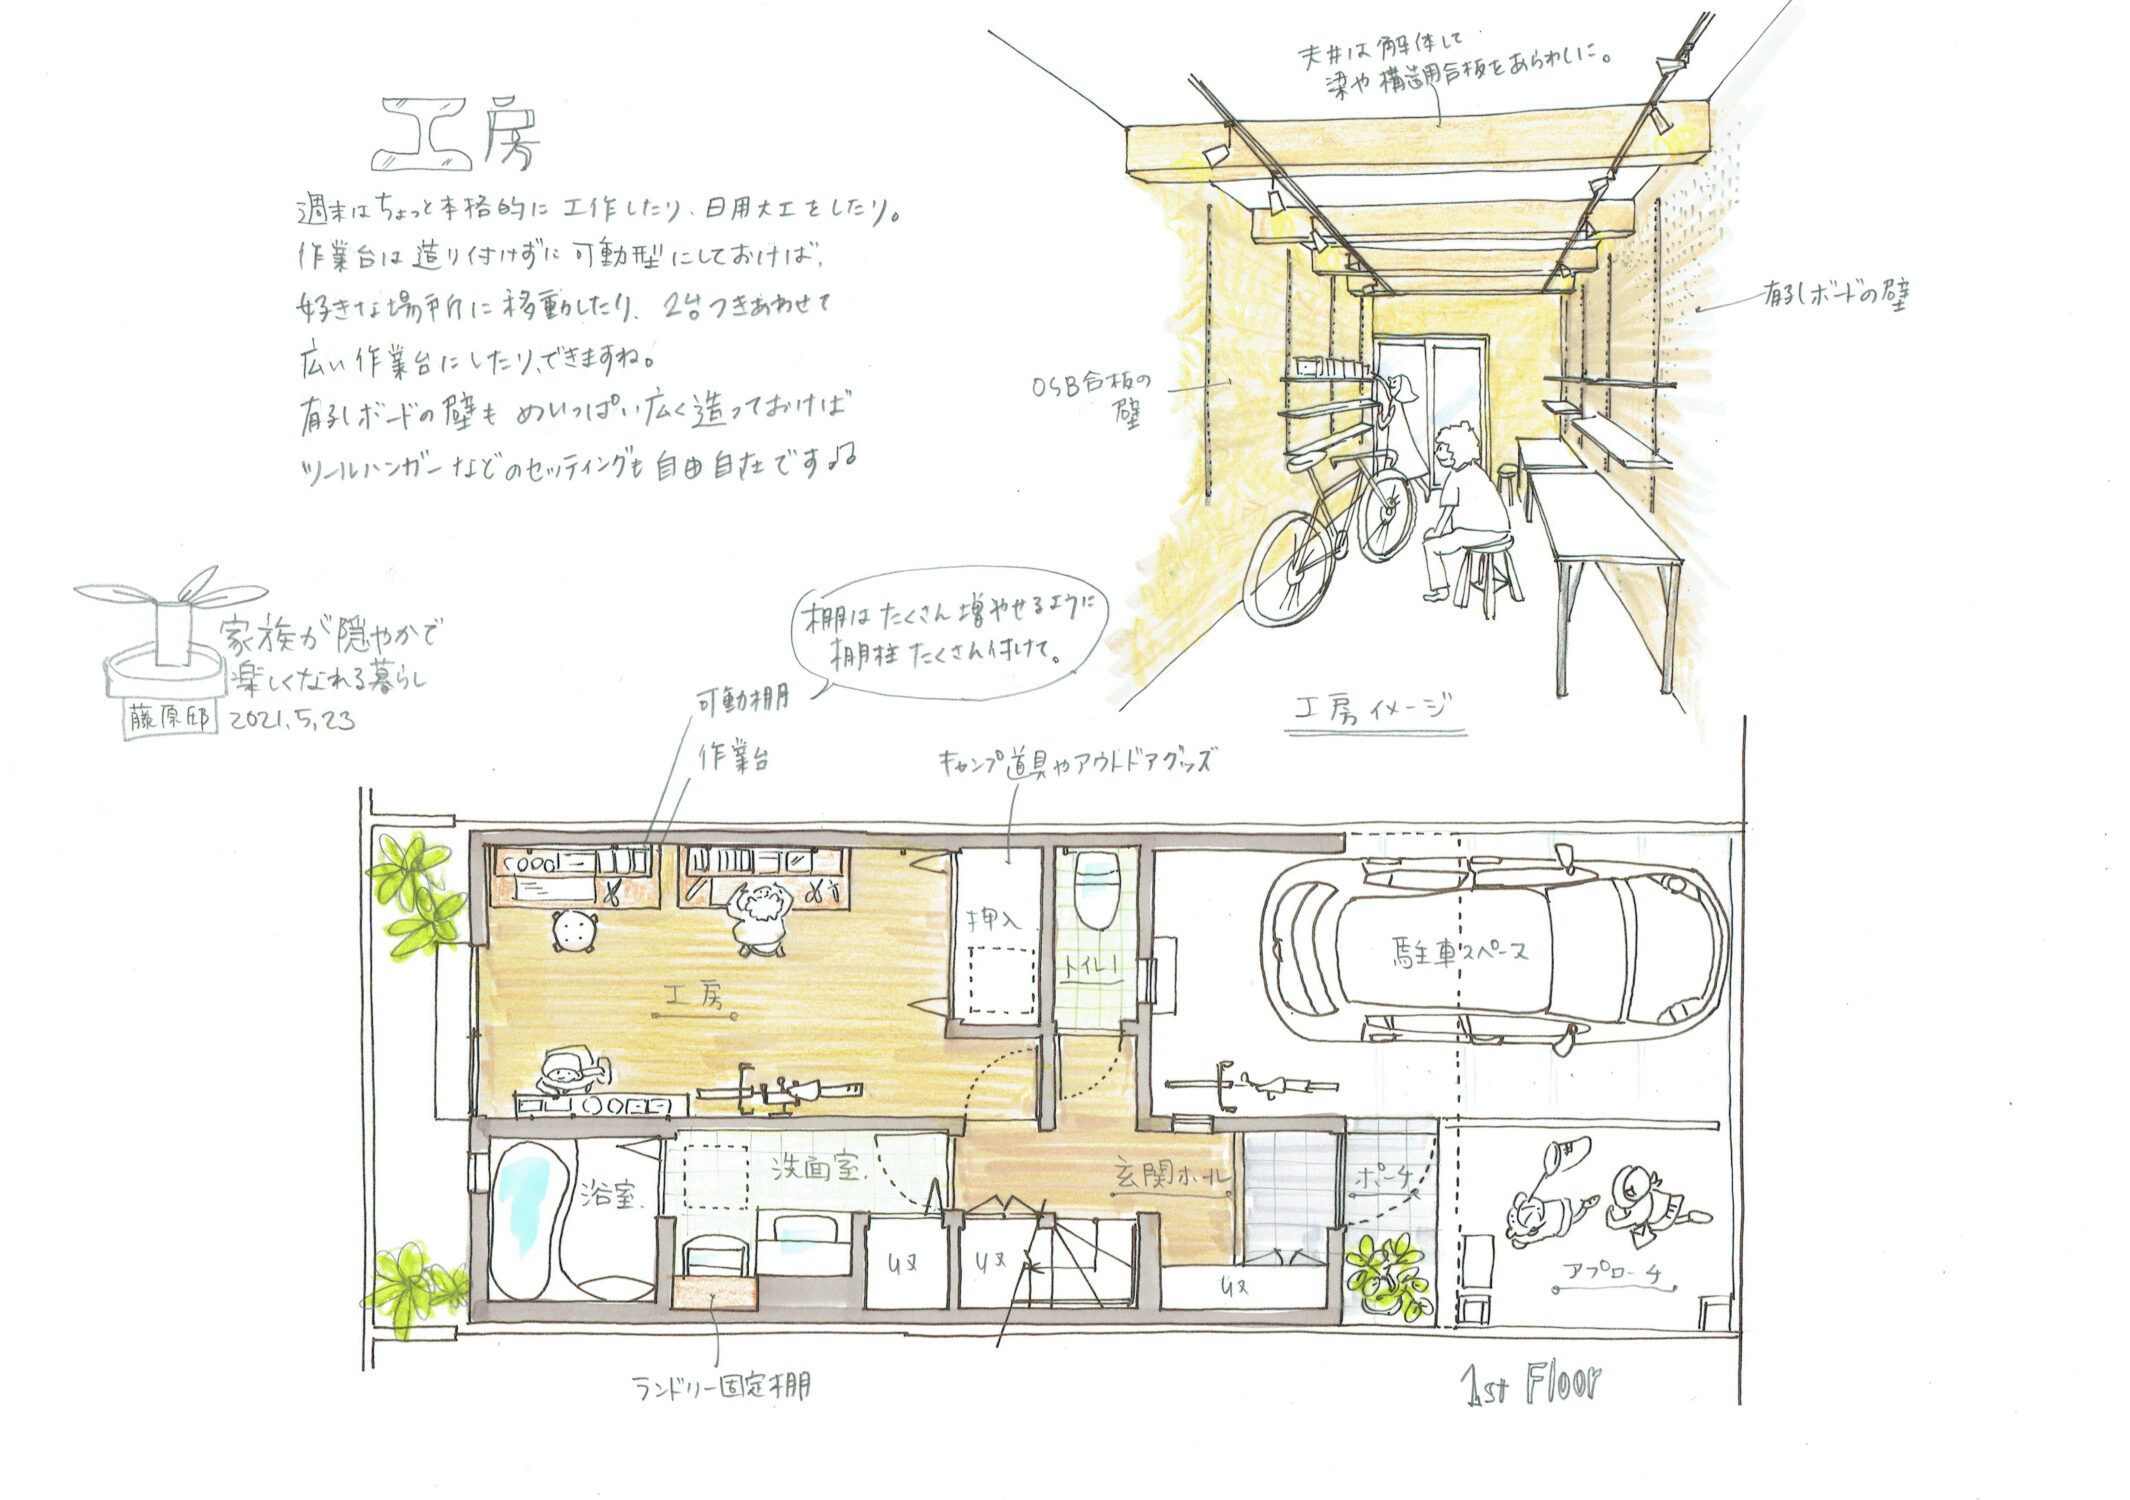 工房
週末はちょっと本格的に工作したり、日用大工をしたり。
作業台は造り付けずに可動型にしておけば、
好きな場所に移動したり、2台つきあわせて
広い作業台にしたり、できますね。
有孔ボードの壁もめいっぱい広く造っておけば
ツールハンガーなどのセッティングも自由自在です♪
天井は解体して
梁や構造用合板をあらわしに。
有孔ボードの壁
OSB合板の
壁
工房イメージ
家族が穏やかで
楽しくなれる暮らし
藤原邸
2021.5.23
棚はたくさん増やせるように
棚柱たくさん付けて。
可動棚
作業台
キャンプ道具やアウトドアグッズ
工房
押入
トイレ1
駐車スペース
浴室
洗面室
玄関ホール
ポーチ
アプローチ
リヌ
リヌ
リヌ
ランドリー固定棚
1st Floor